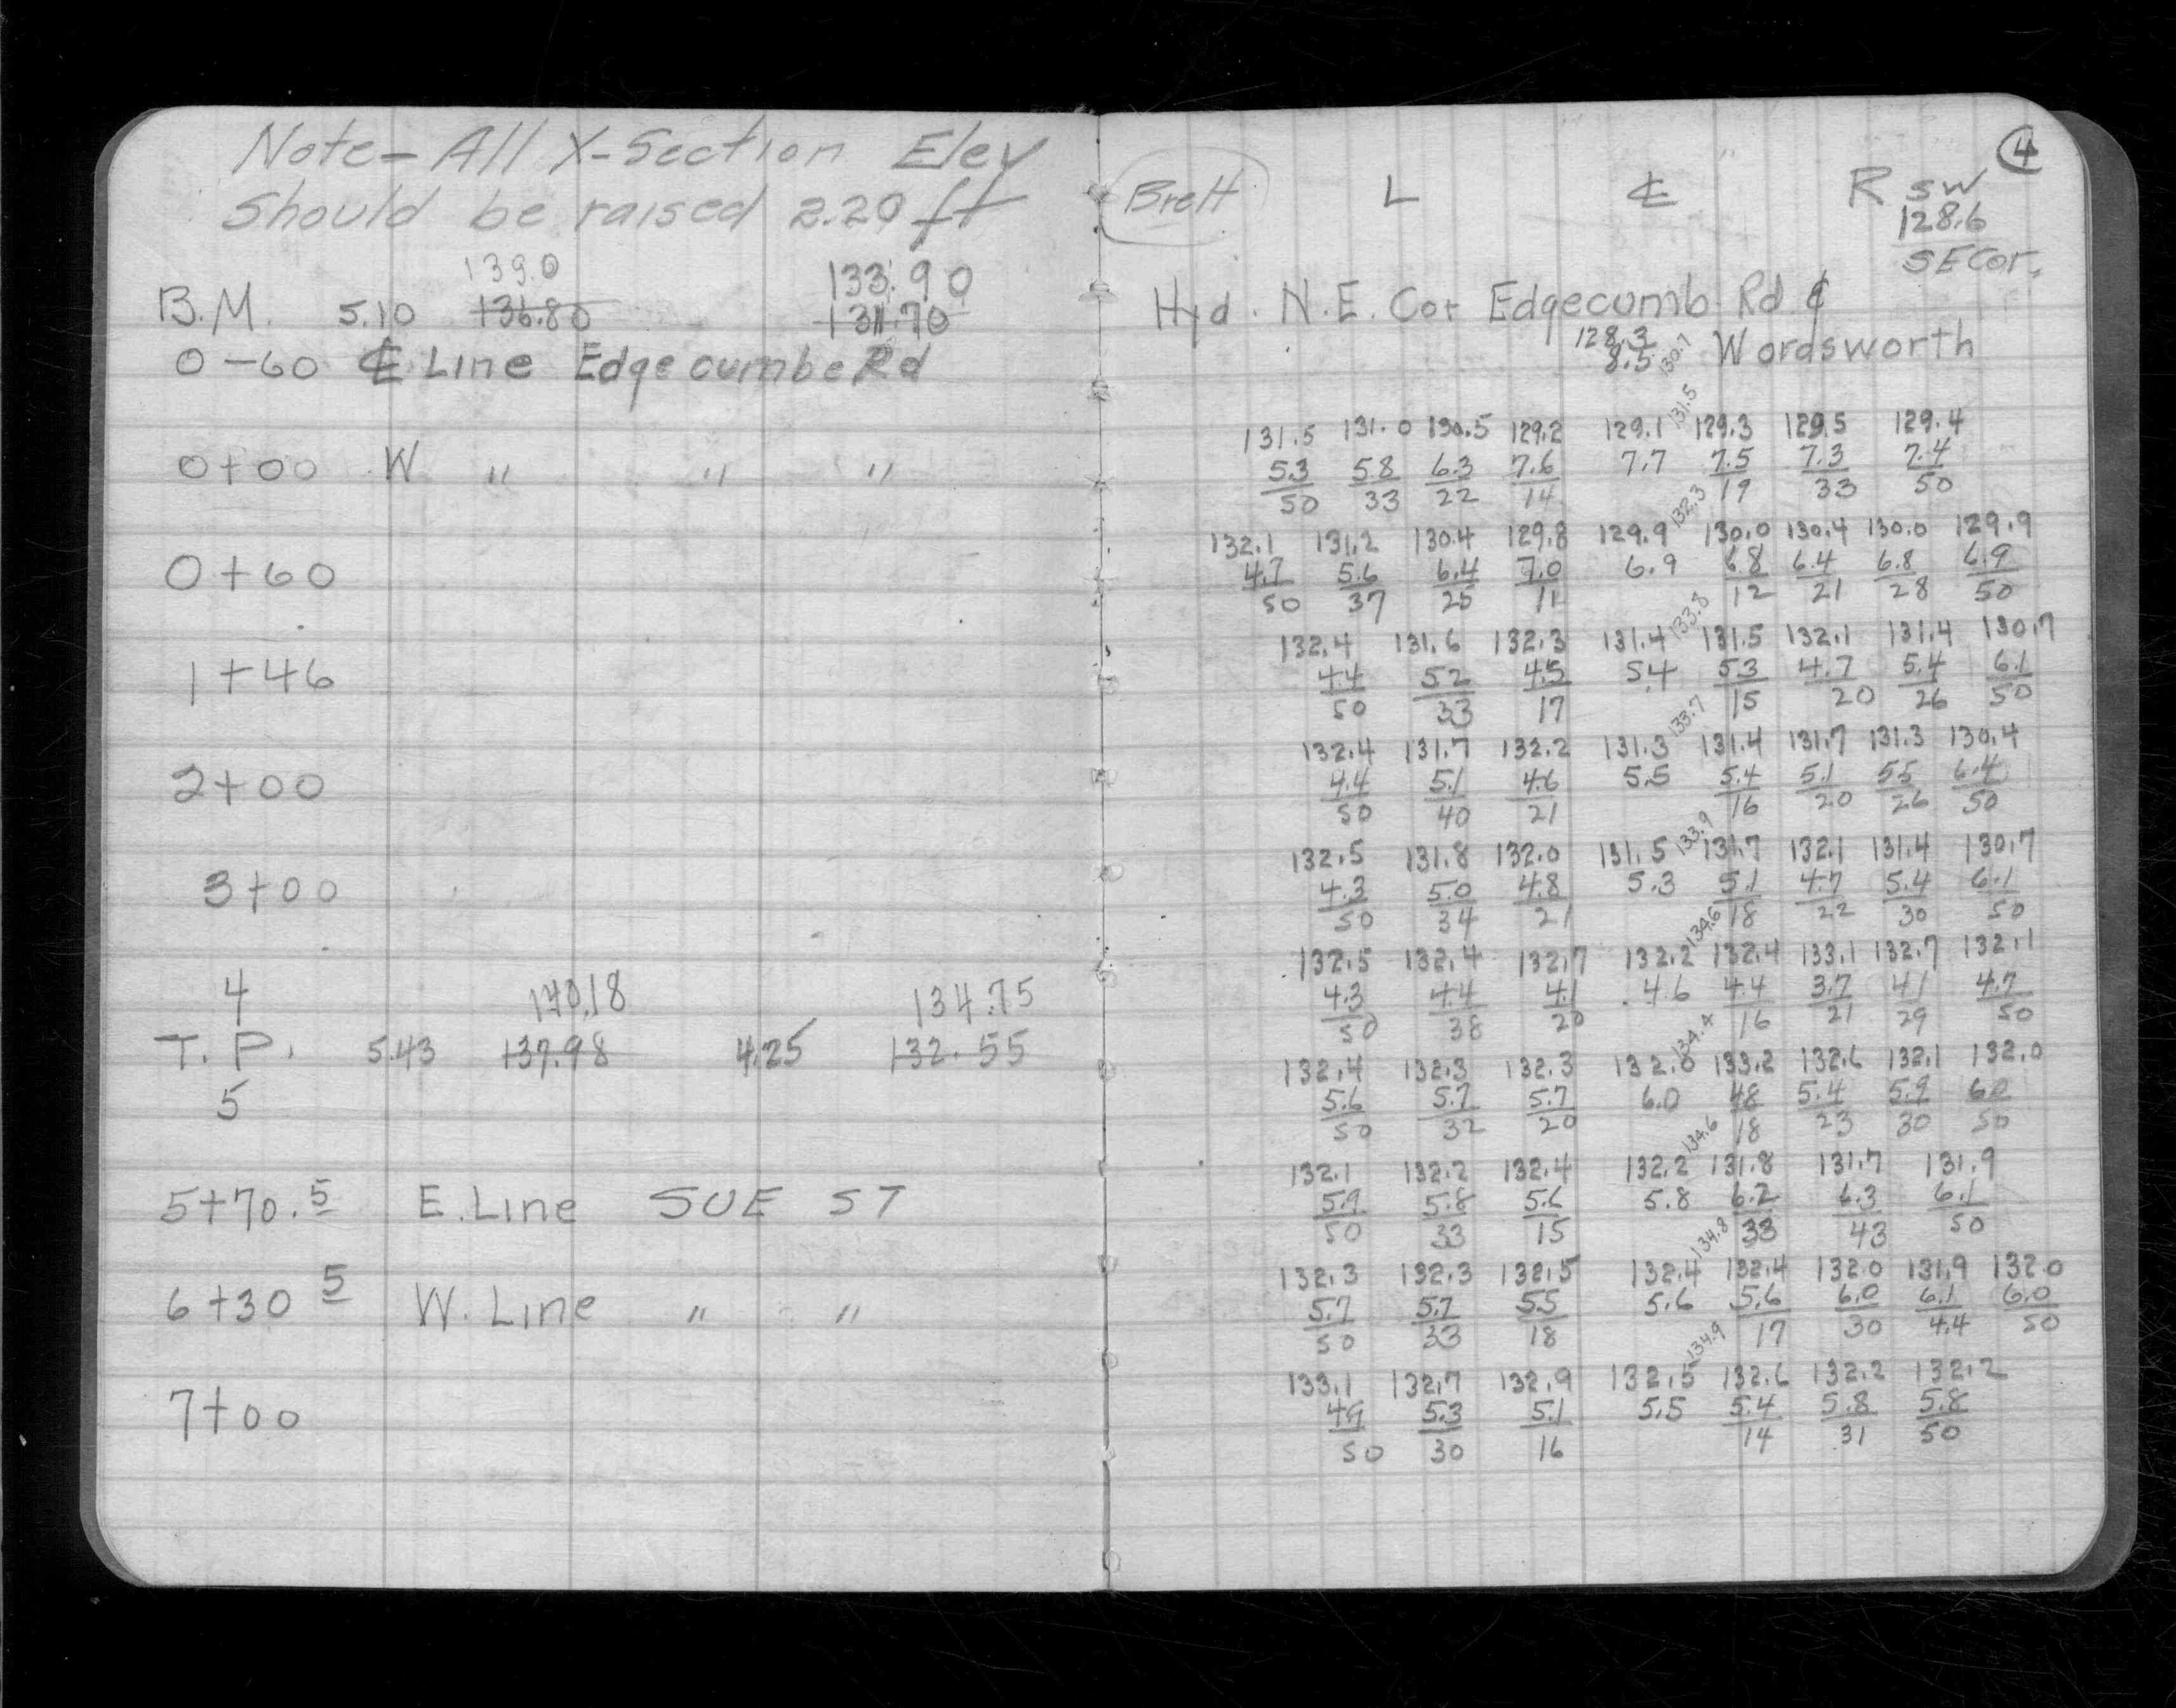 Note - All X-Section Elev
Should be raised 2.20 ft
139.0 133.90
B.M. 5.10 136.80 131.70
0-60 ℄ Line Edgecumbe Rd
0+00 W " " "
0+60
1+46
2+00
3+00
4 140.18 134.75
T.P. 5.43 137.98 4.25 132.55
5
5+70.5 E. Line SUE ST
6+30 5 W. Line " "
7+00
4
Brett L ℄ R SW
128.6
SE Cor.
Hyd. N.E. Cor Edgecumb Rd &
128.3 130.7 Wordsworth
8.5
131.5
131.5 131.0 130.5 129.2 129.1 129.3 129.5 129.4
5.3 5.8 6.3 7.6 7.7 7.5 7.3 7.4
50 33 22 14 19 33 50
132.3
132.1 131.2 130.4 129.8 129.9 130.0 130.4 130.0 129.9
4.7 5.6 6.4 7.0 6.9 6.8 6.4 6.8 6.9
50 37 25 11 12 21 28 50
133.8
132.4 131.6 132.3 131.4 131.5 132.1 131.4 130.7
4.4 5.2 4.5 5.4 5.3 4.7 5.4 6.1
50 33 17 15 20 26 50
133.7
132.4 131.7 132.2 131.3 131.4 131.7 131.3 130.4
4.4 5.1 4.6 5.5 5.4 5.1 5.5 6.4
50 40 21 16 20 26 50
133.9
132.5 131.8 132.0 131.5 131.7 132.1 131.4 130.7
4.3 5.0 4.8 5.3 5.1 4.7 5.4 6.1
50 34 21 18 22 30 50
134.6
132.5 132.4 132.7 132.2 132.4 133.1 132.7 132.1
4.3 4.4 4.1 4.6 4.4 3.7 4.1 4.7
50 38 20 16 21 29 50
134.4
132.4 132.3 132.3 132.0 133.2 132.6 132.1 132.0
5.6 5.7 5.7 6.0 4.8 5.4 5.9 6.0
50 32 20 18 23 30 50
134.6
132.1 132.2 132.4 132.2 131.8 131.7 131.9
5.9 5.8 5.6 5.8 6.2 6.3 6.1
50 33 15 33 43 50
134.8
132.3 132.3 132.5 132.4 132.4 132.0 131.9 132.0
5.7 5.7 5.5 5.6 5.6 6.0 6.1 6.0
50 33 18 17 30 44 50
134.9
133.1 132.7 132.9 132.5 132.6 132.2 132.2
4.9 5.3 5.1 5.5 5.4 5.8 5.8
50 30 16 14 31 50